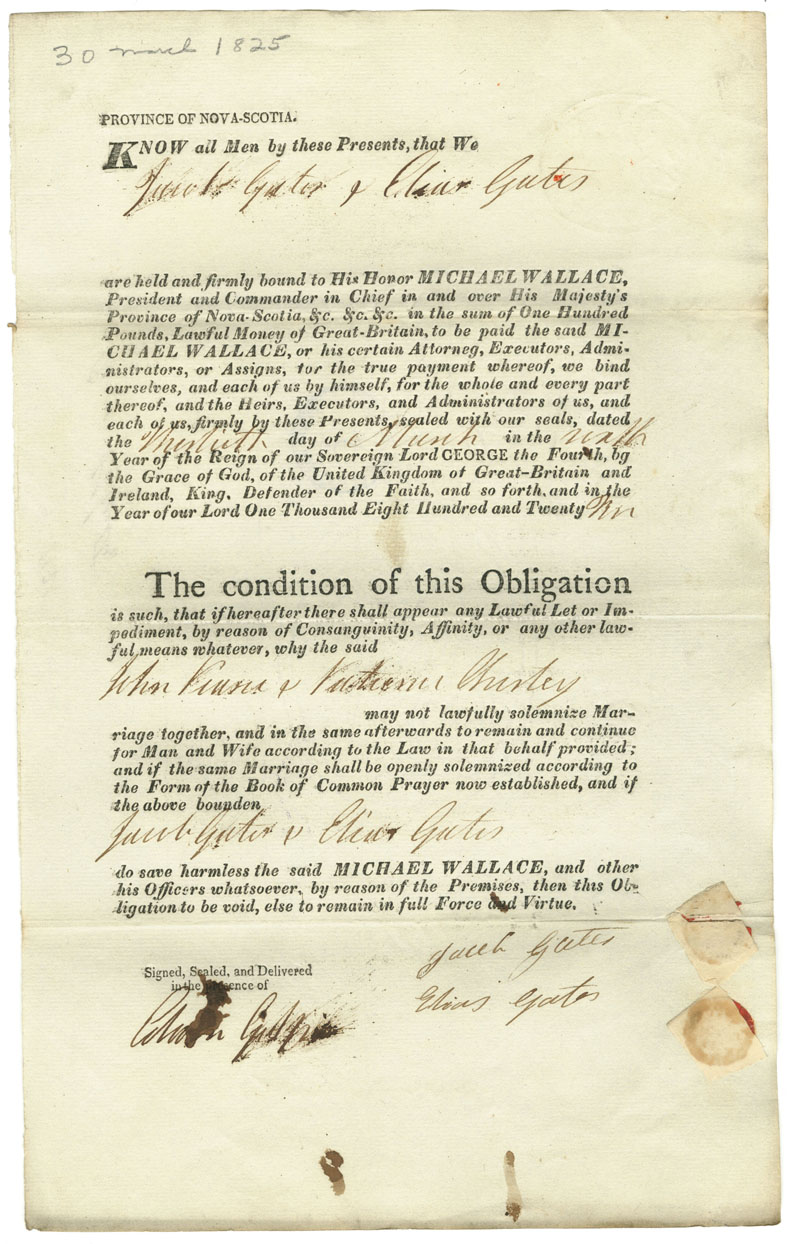 30 March 1825
PROVINCE OF NOVA-SCOTIA.
KNOW all Men by these Presents, that We
Jacob Gates & Elias Gates
are held and firmly bound to His Honor MICHAEL WALLACE,
President and Commander in Chief in and over His Majesty's
Province of Nova-Scotia, &c. &c. &c. in the sum of One Hundred
Pounds, Lawful Money of Great-Britain, to be paid the said MI-
CHAEL WALLACE, or his certain Attorneg, Executors, Admi-
nistrators, or Assigns, for the true payment whereof, we bind
ourselves, and each of us by himself, for the whole and every part
thereof, and the Heirs, Executors, and Administrators of us, and
each of us, firmly by these Presents, sealed with our seals, dated
the Thirtieth day of March in the sixth
Year of the Reign of our Sovereign Lord GEORGE the Fourth, bg
the Grace of God, of the United Kingdom of Great-Britain and
Ireland, King, Defender of the Faith, and so forth, and in the
Year of our Lord One Thousand Eight Hundred and Twenty
The condition of this Obligation
is such, that if hereafter there shall appear any Lawful Let or Im-
pediment, by reason of Consanguinity, Affinity, or any other law-
ful means whatever, why the said
John &
may not lawfully solemnize Mar-
riage together, and in the same afterwards to remain and continue
for Man and Wife according to the Law in that behalf provided;
and if the same Marriage shall be openly solemnized according to
the Form of the Book of Common Prayer now established, and if
the above bounden
Jacob Gates & Elias Gates
do save harmless the said MICHAEL WALLACE, and other
his Officers whatsoever, by reason of the Premises, then this Ob-
ligation to be void, else to remain in full Force and Virtue.
Signed, Sealed, and Delivered
in the Presence of
Jacob Gates
Elias Gates